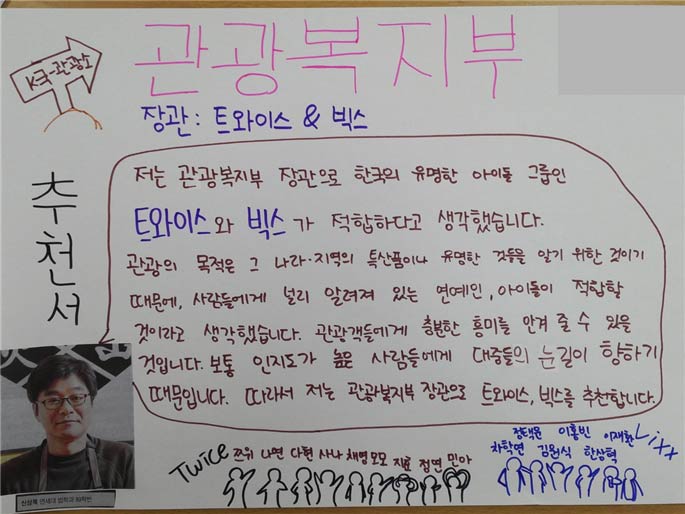 K국-관광소
관광복지부
장관: 트와이스 & 빅스
추천서
저는 관광복지부 장관으로 한국의 유명한 아이돌 그룹인
트와이스와 빅스가 적합하다고 생각했습니다.
관광의 목적은 그 나라·지역의 특산품이나 유명한 것들을 알기 위한 것이기
때문에, 사람들에게 널리 알려져 있는 연예인, 아이돌이 적합할
것이라고 생각했습니다. 관광객들에게 충분한 흥미를 안겨 줄 수 있을
것입니다. 보통 인지도가 높은 사람들에게 대중들의 눈길이 향하기
때문입니다. 따라서 저는 관광복지부 장관으로 트와이스, 빅스를 추천합니다.
Twice 쯔위 나연 다현 사나 채영 모모 지효 정연 미나
정택운 이홍빈 이재환
차학연 김원식 한상혁
연세대 법학과